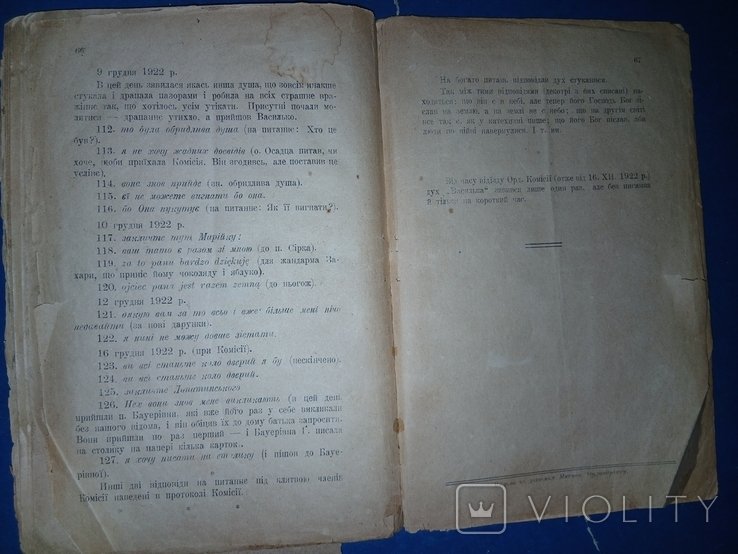 66
9 грудня 1922 р.
В цей день зявилася якась инша душа, що зовсім инакше
стукала і драпала пазорами і робила на всіх страшне вра-
жіннє так, що хотілось усім утікати. Присутні почали мо-
литися — драпаннє утихло, а прийшов Василько.
112. то була обридлива душа (на питанне: Хто це
був?).
113. я не хочу жадних досвідів (о. Осадца питав, чи
хоче, якби приїхала Комісія. Він згодивсь, але поставив це
условіє).
114. воне знов прийде (зн. обридлива душа).
115. єї не можете вигнати бо она.
116. бо Она покутує (на питанне: Як її вигнати?).
10 грудня 1922 р.
117. закличте тут Марійку:
118. ваш тато є разом зі мною (до п. Сірка).
119. za to panu bardzo dziękuję (для жандарма За-
хари, що приніс йому чоколяду і яблуко).
120. ojciec pana jest razem zemną (до ньогож).
12 грудня 1922 р.
121. дякую вам за то всьо і вже більше мені ніц
недавайти (за нові дарунки).
122. я нині не можу довше зістати.
16 грудня 1922 р. (при Комісії).
123. ви всі станете коло дверий я бу (нескінчено).
124. ви всі станьте коло дверий.
125. закличте
126. Неx вони знов мене викликають (в цей день
прийшли п. Бауерівни, які вже його раз у себе викликали
без нашого відома, і він обіцяв їх до дому батька запросити.
Вони прийшли по раз перший — і Бауерівна Г. писала
на столику на папері кілька карток.
127. я хочу писати на столику (і пішов до Бауе-
рівної).
Инші дві відповіди на питанне під клятвою членів
Комісії наведені в протоколі Комісії.
67
На богато питань відповідав дух стуканням.
Так між тими відповідями (декотрі з них списані) на-
ходиться: що він є в небі, але тепер його Господь Бог
слав на землю, а на землі не є небо; що на другім світі
все так є, як у катехизмі пише; що його Бог післав, аби
люди по війні навернулися. І т. ин.
Від часу відїзду Орд. Комісії (отже від 16. XII. 1922 р.)
дух „Василька" зявився лише один раз, але без писання
й тільки на короткий час.
VIOLITY